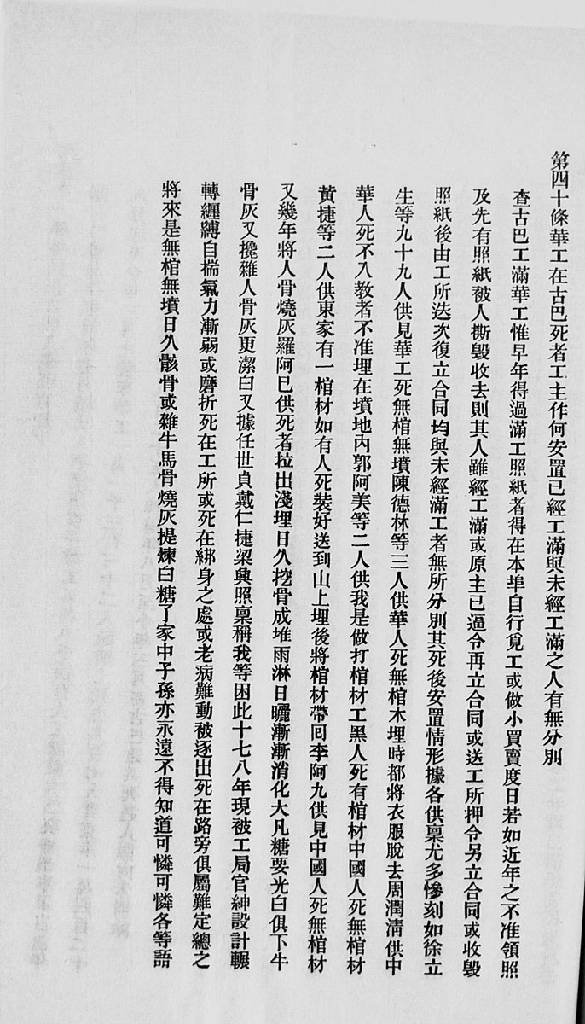 第四十條華工在古巴死者工主作何安置已經工滿與未經工滿之人有無分別
查古巴工滿華工惟早年得過滿工照紙者得在本埠自行覓工或做小買賣度日若如近年之不准領照
及先有照紙被人撕毀收去則其人雖經工滿或原主已逼令再立合同或送工所押令另立合同或收毀
照紙後由工所迭次復立合同均與未經滿工者無所分別其死後安置情形據各供稟尤多慘刻如徐立
生等九十九人供見華工死無棺無墳陳德林等三人供華人死無棺木埋時都將衣服脫去周潤清供中
華人死不入教者不准埋在墳地內郭阿美等二人供我是做打棺材工黑人死有棺材中國人死無棺材
黃捷等二人供東家有一棺材如有人死裝好送到山上埋後將棺材帶回李阿九供見中國人死無棺材
又幾年將人骨燒灰羅阿巳供死者拉出淺埋日久挖骨成堆雨淋日曬漸漸消化大凡糖要光白俱下牛
骨灰又攙雜人骨灰更潔白又據任世貞戴仁捷梁興照稟稱我等困此十七八年現被工局官紳設計輾
轉纏縛自揣氣力漸弱或磨折死在工所或死在綁身之處或老病難動被逐出死在路旁俱屬難定總之
將來是無棺無墳日久骸骨或雜牛馬骨燒灰提煉白糖了家中子孫亦永遠不得知道可憐可憐各等語